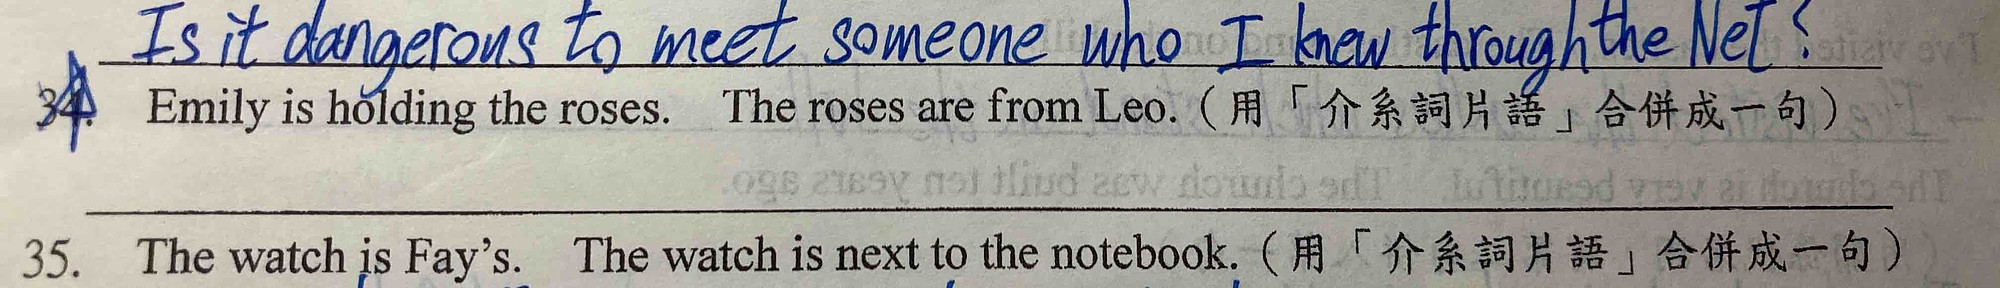 Is it dangerous to meet someone who I knew through the Net?
34. Emily is holding the roses. The roses are from Leo.（用「介系詞片語」合併成一句）
35. The watch is Fay's. The watch is next to the notebook.（用「介系詞片語」合併成一句）